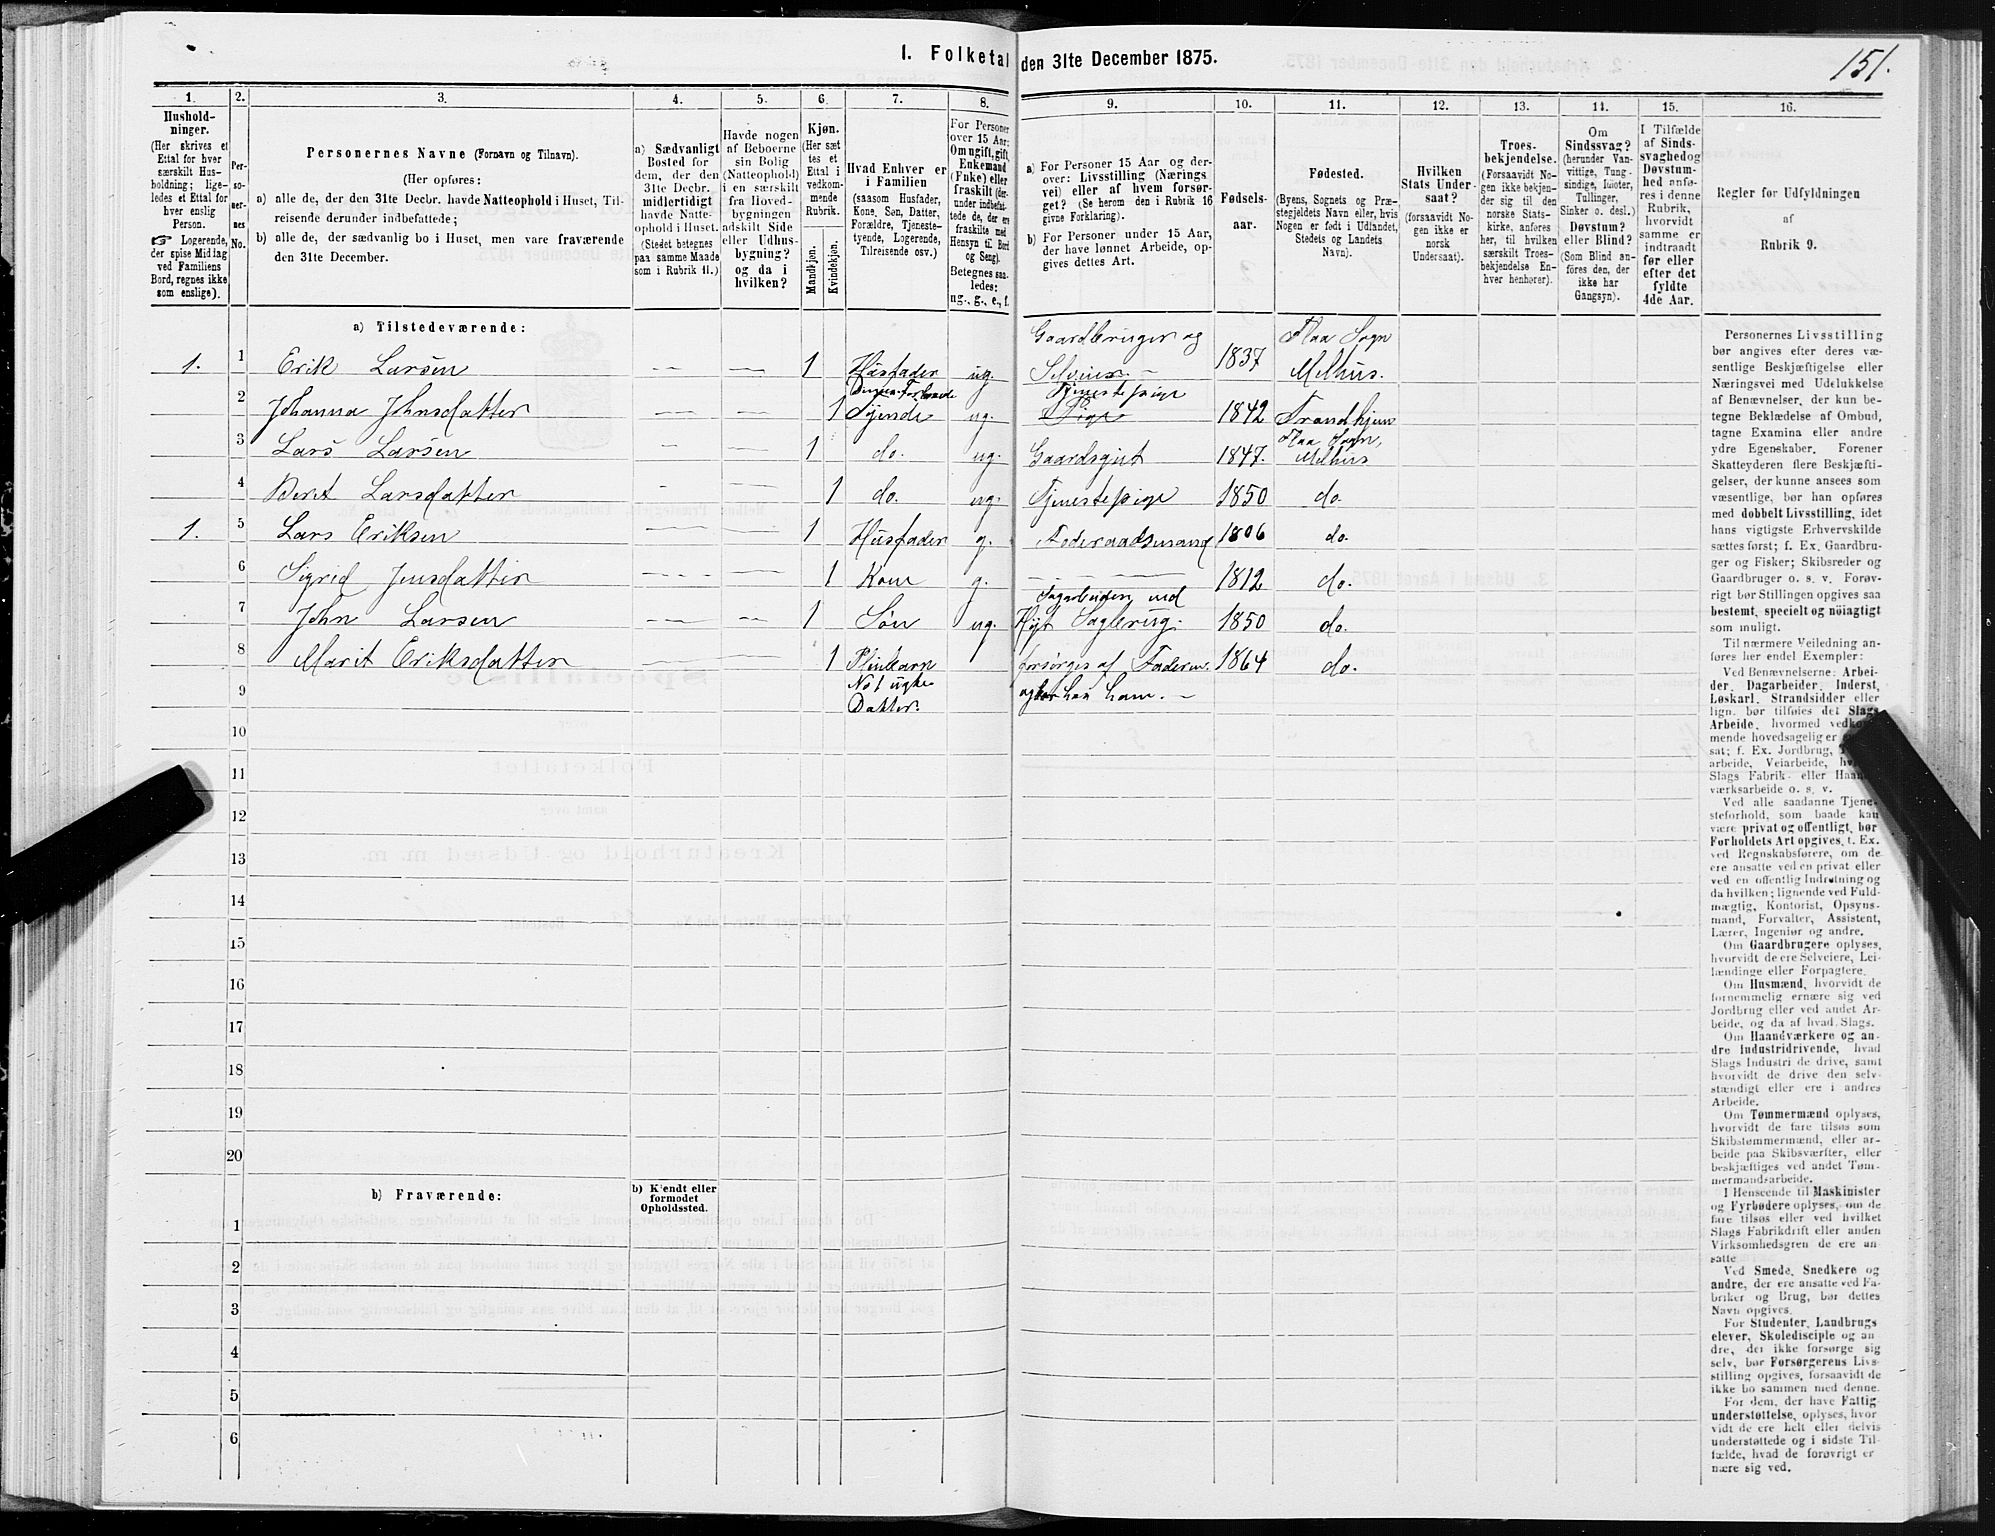 1. Folketal den 31te December 1875.
151.
1.
2.
3.
4.
5.
6.
7.
8.
9.
10.
11.
12.
13.
14.
15.
16.
Hushold-
ninger.
(Her skrives et
Ettal for hver
særskilt Hus-
holdning; lige-
ledes et Ettal for
hver enslig
Person.
☞ Logerende,
der spise Middag
ved Familiens
Bord, regnes ikke
som enslige).
Per-
so-
ner-
nes
No.
Personernes Navne (Fornavn og Tilnavn).
(Her opføres:
a) alle de, der den 31te Decbr. havde Natteophold i Huset, Til-
reisende derunder indbefattede;
b) alle de, der sædvanlig bo i Huset, men vare fraværende
den 31te December.
a) Sædvanligt
Bosted for
dem, der den
31te Decbr.
midlertidigt
havde Natte-
ophold i Huset.
(Stedet betegnes
paa samme Maade
som i Rubrik 11.)
Havde nogen
af Beboerne
sin Bolig
(Natteophold)
i en særskilt
fra Hoved-
bygningen
adskilt Side
eller Udhus-
bygning?
og da i
hvilken?
Kjøn.
(Her sæt
tes et
Ettal i
vedkom-
mende
Rubrik.
Mandkjøn.
Kvindekjøn.
Hvad Enhver er
i Familien
(saasom Husfader,
Kone, Søn, Datter,
Forældre, Tjeneste-
tyende, Logerende,
Tilreisende osv.)
For Personer
over 15 Aar:
Om ugift, gift,
Enkemand
(Enke) eller
fraskilt (der-
under indbefat-
tede de, der ere
fraskilte med
Hensyn til Bord
og Seng).
Betegnes saa-
ledes:
ug., g., e., f.
a) For Personer 15 Aar og der-
over: Livsstilling (Nærings
vei) eller af hvem forsør-
get? (Se herom den i Rubrik 16
givne Forklaring).
b) For Personer under 15 Aar,
der have lønnet Arbeide, op-
gives dettes Art.
Fødsels-
aar.
Fødested.
(Byens, Sognets og Præ-
stegjeldets Navn eller, hvis
Nogen er født i Udlandet,
Stedets og Landets
Navn).
Hvilken
Stats Under-
saat?
(forsaavidt No-
gen ikke er
norsk
Undersaat).
Troes-
bekjendelse.
(Forsaavidt No-
gen ikke bekjen-
der sig til den
norske Stats-
kirke, anføres
her, til hvilken
særskilt Troes-
bekjendelse En-
hver henhører).
Om
Sindssvag?
(herunder Van-
vittige, Tung-
sindige, Idioter,
Tullinger,
Sinker o. desl.)
Døvstum?
eller Blind?
(Som Blind an-
føres den, der
ikke har
Gangsyn).
I Tilfælde
af Sinds-
svaghed og
Døvstum-
hed anfø-
res i denne
Rubrik,
hvorvidt
samme er
indtraadt
før eller
efter det
fyldte
4de Aar.
Regler for Udfyldningen
af
Rubrik 9.
a) Tilstedeværende:
1. 1 Erik Larsen — — 1 Husfader ug. Gaardbruger og Selveier. – 1837 Flaa Sogn Melhus.
2 Johanna Johnsdatter — — 1 Tyende ug. Tjenestepige Pige 1842 Trondhjem
3 Lars Larsen — 1 do. ug. Gaardsgut 1847. Flaa Sogn, Melhus
4 Beret Larsdatter — — 1 do. ug. Tjenestepige 1850 do.
1. 5 Lars Eriksen — — 1 Husfader g. Føderaadsmand 1806 do.
6 Sigrid Jensdatter — — 1 Kone g. — — — 1812 do.
7 John Larsen — — 1 Søn ug. ved Sagbrug. 1850 do.
8 Marit Eriksdatter — — 1 No 1 Datter. forsørges af Faderen. 1864 do.
9
10
11
12
13
14
15
16
17
18
19
20
b) Fraværende:
b) Kjendt eller
formodet
Opholdssted.
1
2
3
4
5
6
Personernes Livsstilling
bør angives efter deres væ-
sentlige Beskjæftigelse eller
Næringsvei med Udelukkelse
af Benævnelser, der kun be-
tegne Beklædelse af Ombud,
tagne Examina eller andre
ydre Egenskaber. Forener
Skatteyderen flere Beskjæfti-
gelser, der kunne ansees som
væsentlige, bør han opføres
med dobbelt Livsstilling, idet
hans vigtigste Erhvervskilde
sættes først; f. Ex. Gaardbru-
ger og Fisker; Skibsreder og
Gaardbruger o. s. v. Forøv-
rigt bør Stillingen opgives saa
bestemt, specielt og nøiagtigt
som muligt.
Til nærmere Veiledning an-
føres her endel Exempler:
Ved Benævnelserne: Arbei-
der, Dagarbeider, Inderst,
Løskarl, Strandsidder eller
lign. bør tilføies det Slags
Arbeide, hvormed vedkom-
mende hovedsagelig er
sat; f. Ex. Jordbrug,
arbeide, Veiarbeide,
Slags Fabrik- eller Haand-
værksarbeide o. s. v.
Ved alle saadanne Tjene-
steforhold, som baade kan
være privat og offentligt, bør
Forholdets Art opgives, t. Ex.
ved Regnskabsførere, om de
ere ansatte ved en privat eller
ved en offentlig Indretning og
da hvilken; lignende ved Fuld-
mægtig, Kontorist, Opsyns-
mand, Forvalter, Assistent,
Lærer, Ingeniør og andre.
Om Gaardbrugere oplyses,
hvorvidt de ere Selveiere, Lei-
lændinge eller Forpagtere.
Om Husmænd, hvorvidt de
fornemmelig ernære sig ved
Jordbrug eller ved andet Ar-
beide, og da af hvad Slags.
Om Haandværkere og an-
dre Industridrivende, hvad
Slags Industri de drive, samt
hvorvidt de drive den selv-
stændigt eller ere i andres
Arbeide.
Om Tømmermænd oplyses,
hvorvidt de fare tilsøs som
Skibstømmermænd, eller ar-
beide paa Skibsværfter, eller
beskjæftiges ved andet Tøm-
mermandsarbeide.
I Henseende til Maskinister
og Fyrbødere oplyses, om de
fare tilsøs eller ved hvilket
Slags Fabrikdrift eller anden
Virksomhedsgren de ere an-
satte
Ved Smede, Snedkere og
andre, der ere ansatte ved Fa-
briker og Brug, bør dettes
Navn opgives.
For Studenter, Landbrugs
elever, Skoledisciple og an
dre, der ikke forsørge sig
selv, bør Forsørgerens Livs-
stilling opgives, forsaavidt de
ikke bo sammen med denne.
For dem, der have Fattig-
understøttelse, oplyses, hvor
vidt de ere helt eller delvis
understøttede og i sidste Til-
fælde, hvad de forøvrigt er
nære sig ved.